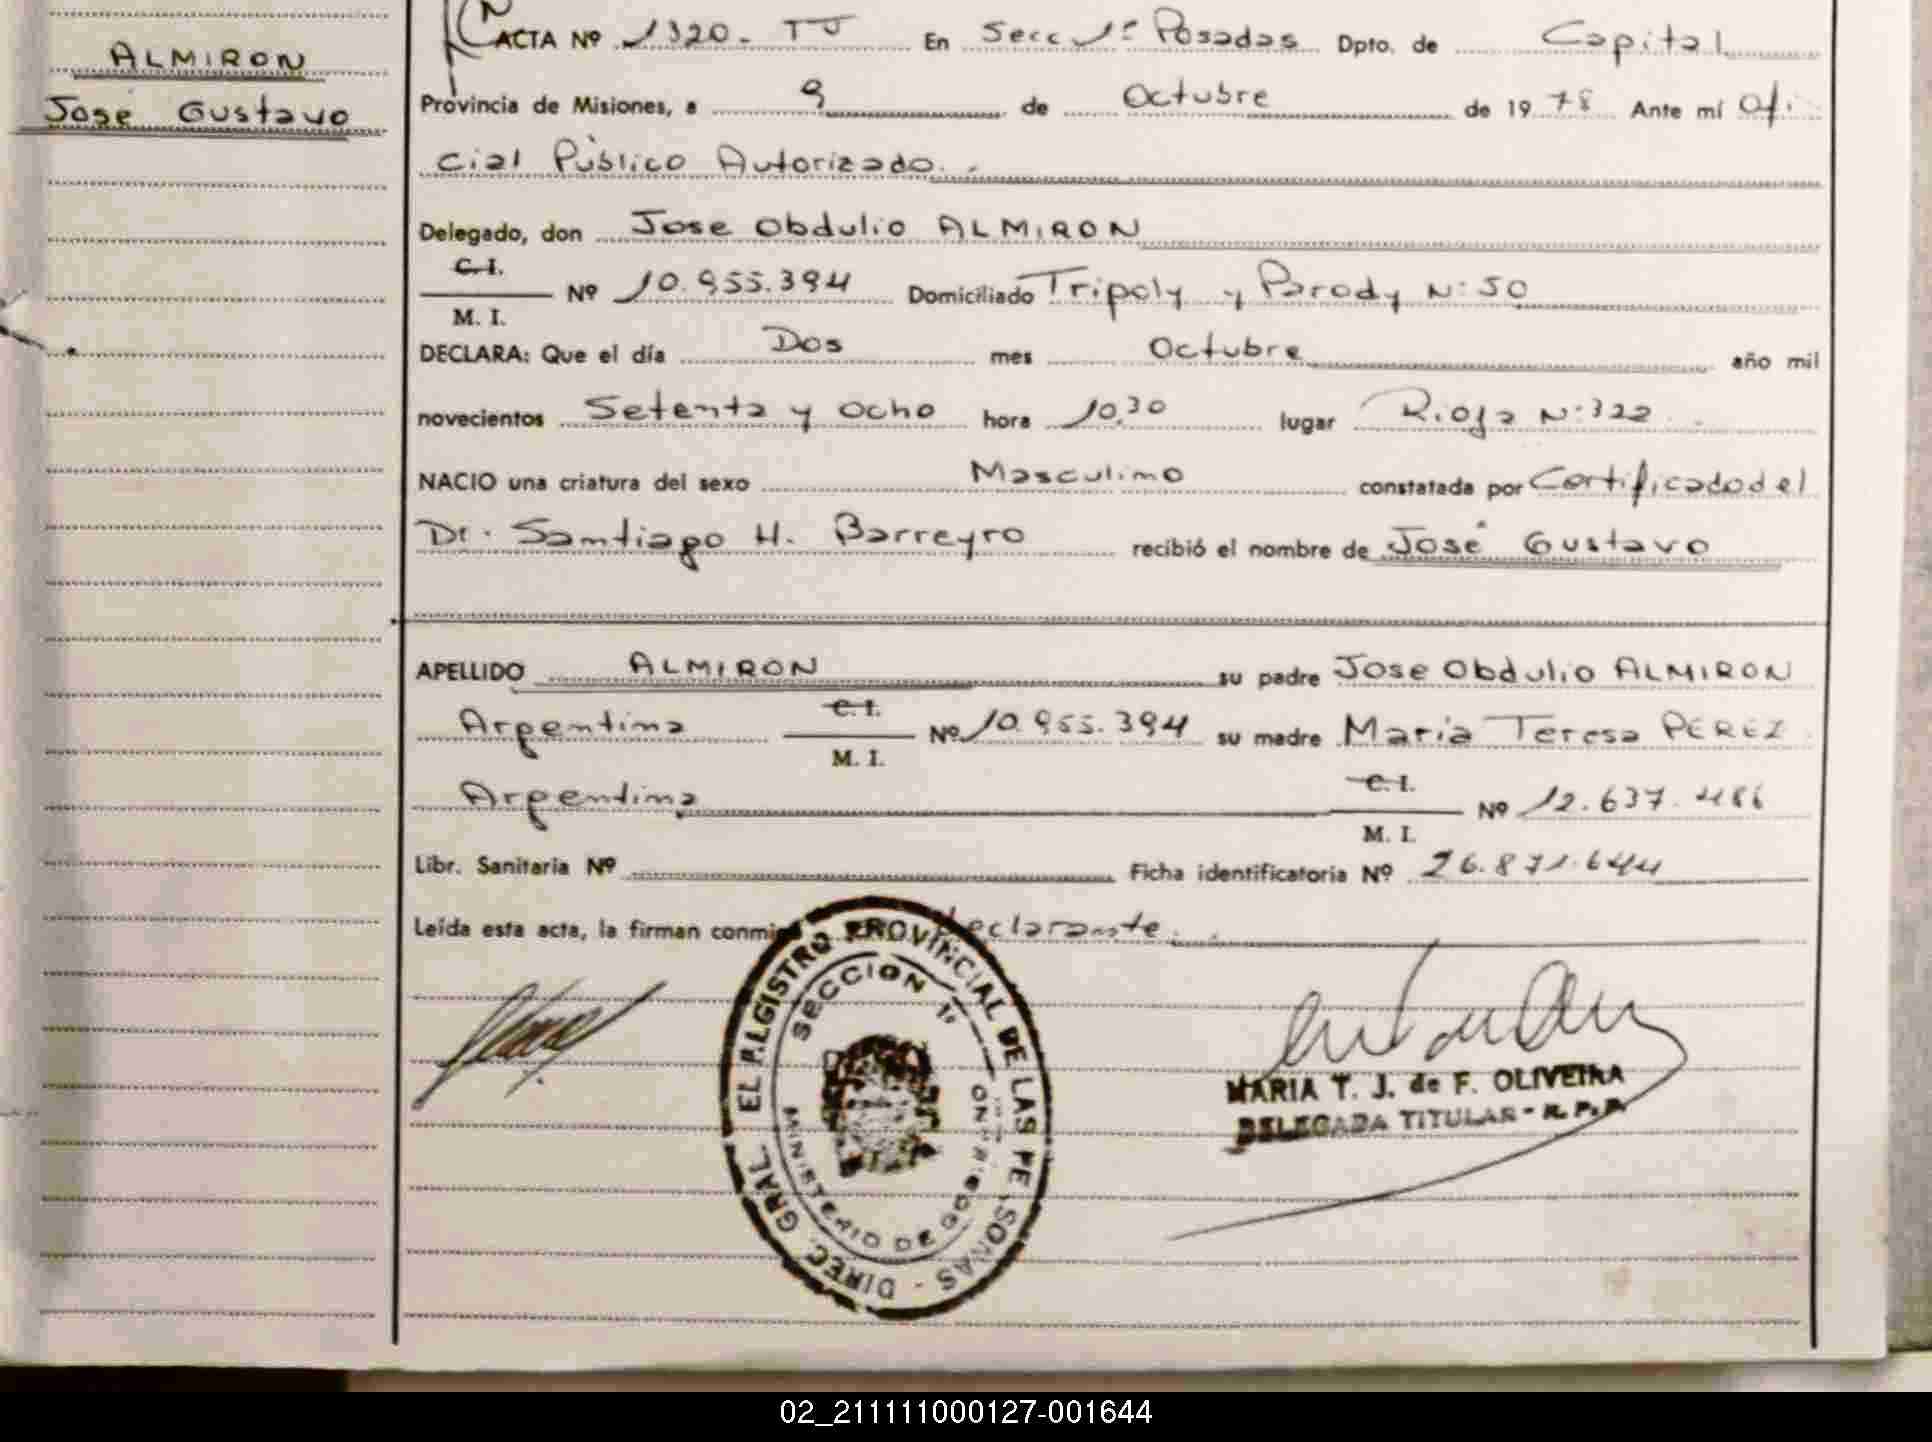 ALMIRON
José Gustavo
ACTA Nº 1320- TJ En Secc 1º Posadas Dpto. de Capital
Provincia de Misiones, a 9 de Octubre de 1978 Ante mí Ofi
cial Público Autorizado.
Delegado, don Jose Obdulio ALMIRON
C.I.
M. I.
Nº 10.955.394 Domiciliado Tripoly y Parody N: 50
DECLARA: Que el día Dos mes Octubre año mil
novecientos Setenta y ocho hora 10.30 lugar Rioja N:322
NACIO una criatura del sexo Masculino constatada por Certificado del
Dr. Santiago H. Barreyro recibió el nombre de José Gustavo
APELLIDO ALMIRON su padre Jose Obdulio ALMIRON
Argentina C.I.
M. I.
Nº 10.955.394 su madre Maria Teresa PEREZ
Argentina C.I.
M. I.
Nº 12.637.486
Libr. Sanitaria Nº Ficha identificatoria Nº 26.871.644
Leída esta acta, la firman conmigo declarante.
DIREC. GRAL. EL REGISTRO PROVINCIAL DE LAS PERSONAS
SECCION 1ª
MINISTERIO DE GOBIERNO
MARIA T. J. de F. OLIVEIRA
DELEGADA TITULAR - R. P. P.
02_211111000127-001644